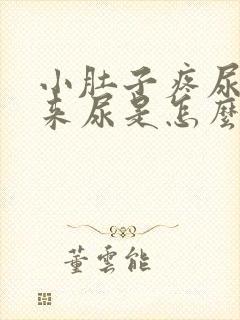 小肚子疼尿
来尿是怎麼
董雲能